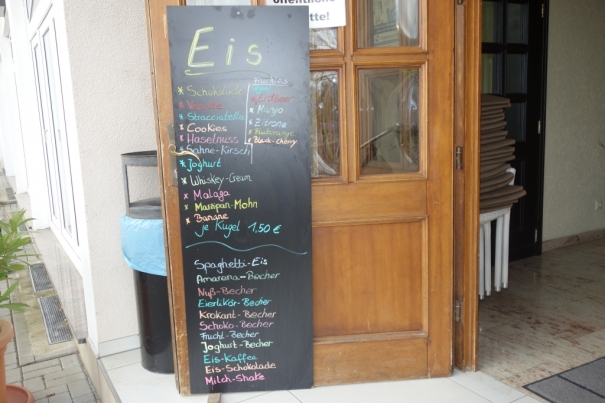 öffentliche
tte!
Eis
* Schokolade
* Vanille
* Stracciatella
* Cookies
* Haselnuss
* Sahne-Kirsch
* Joghurt
* Whiskey-Cream
* Malaga
* Marzipan-Mohn
* Banane
* Erdbeer
* Mango
* Zitrone
* Blutorange
* Black-Cherry
je Kugel 1,50 €
Spaghetti-Eis
Amarena-Becher
Nuß-Becher
Eierlikör-Becher
Krokant-Becher
Schoko-Becher
Frucht-Becher
Joghurt-Becher
Eis-Kaffee
Eis-Schokolade
Milch-Shake